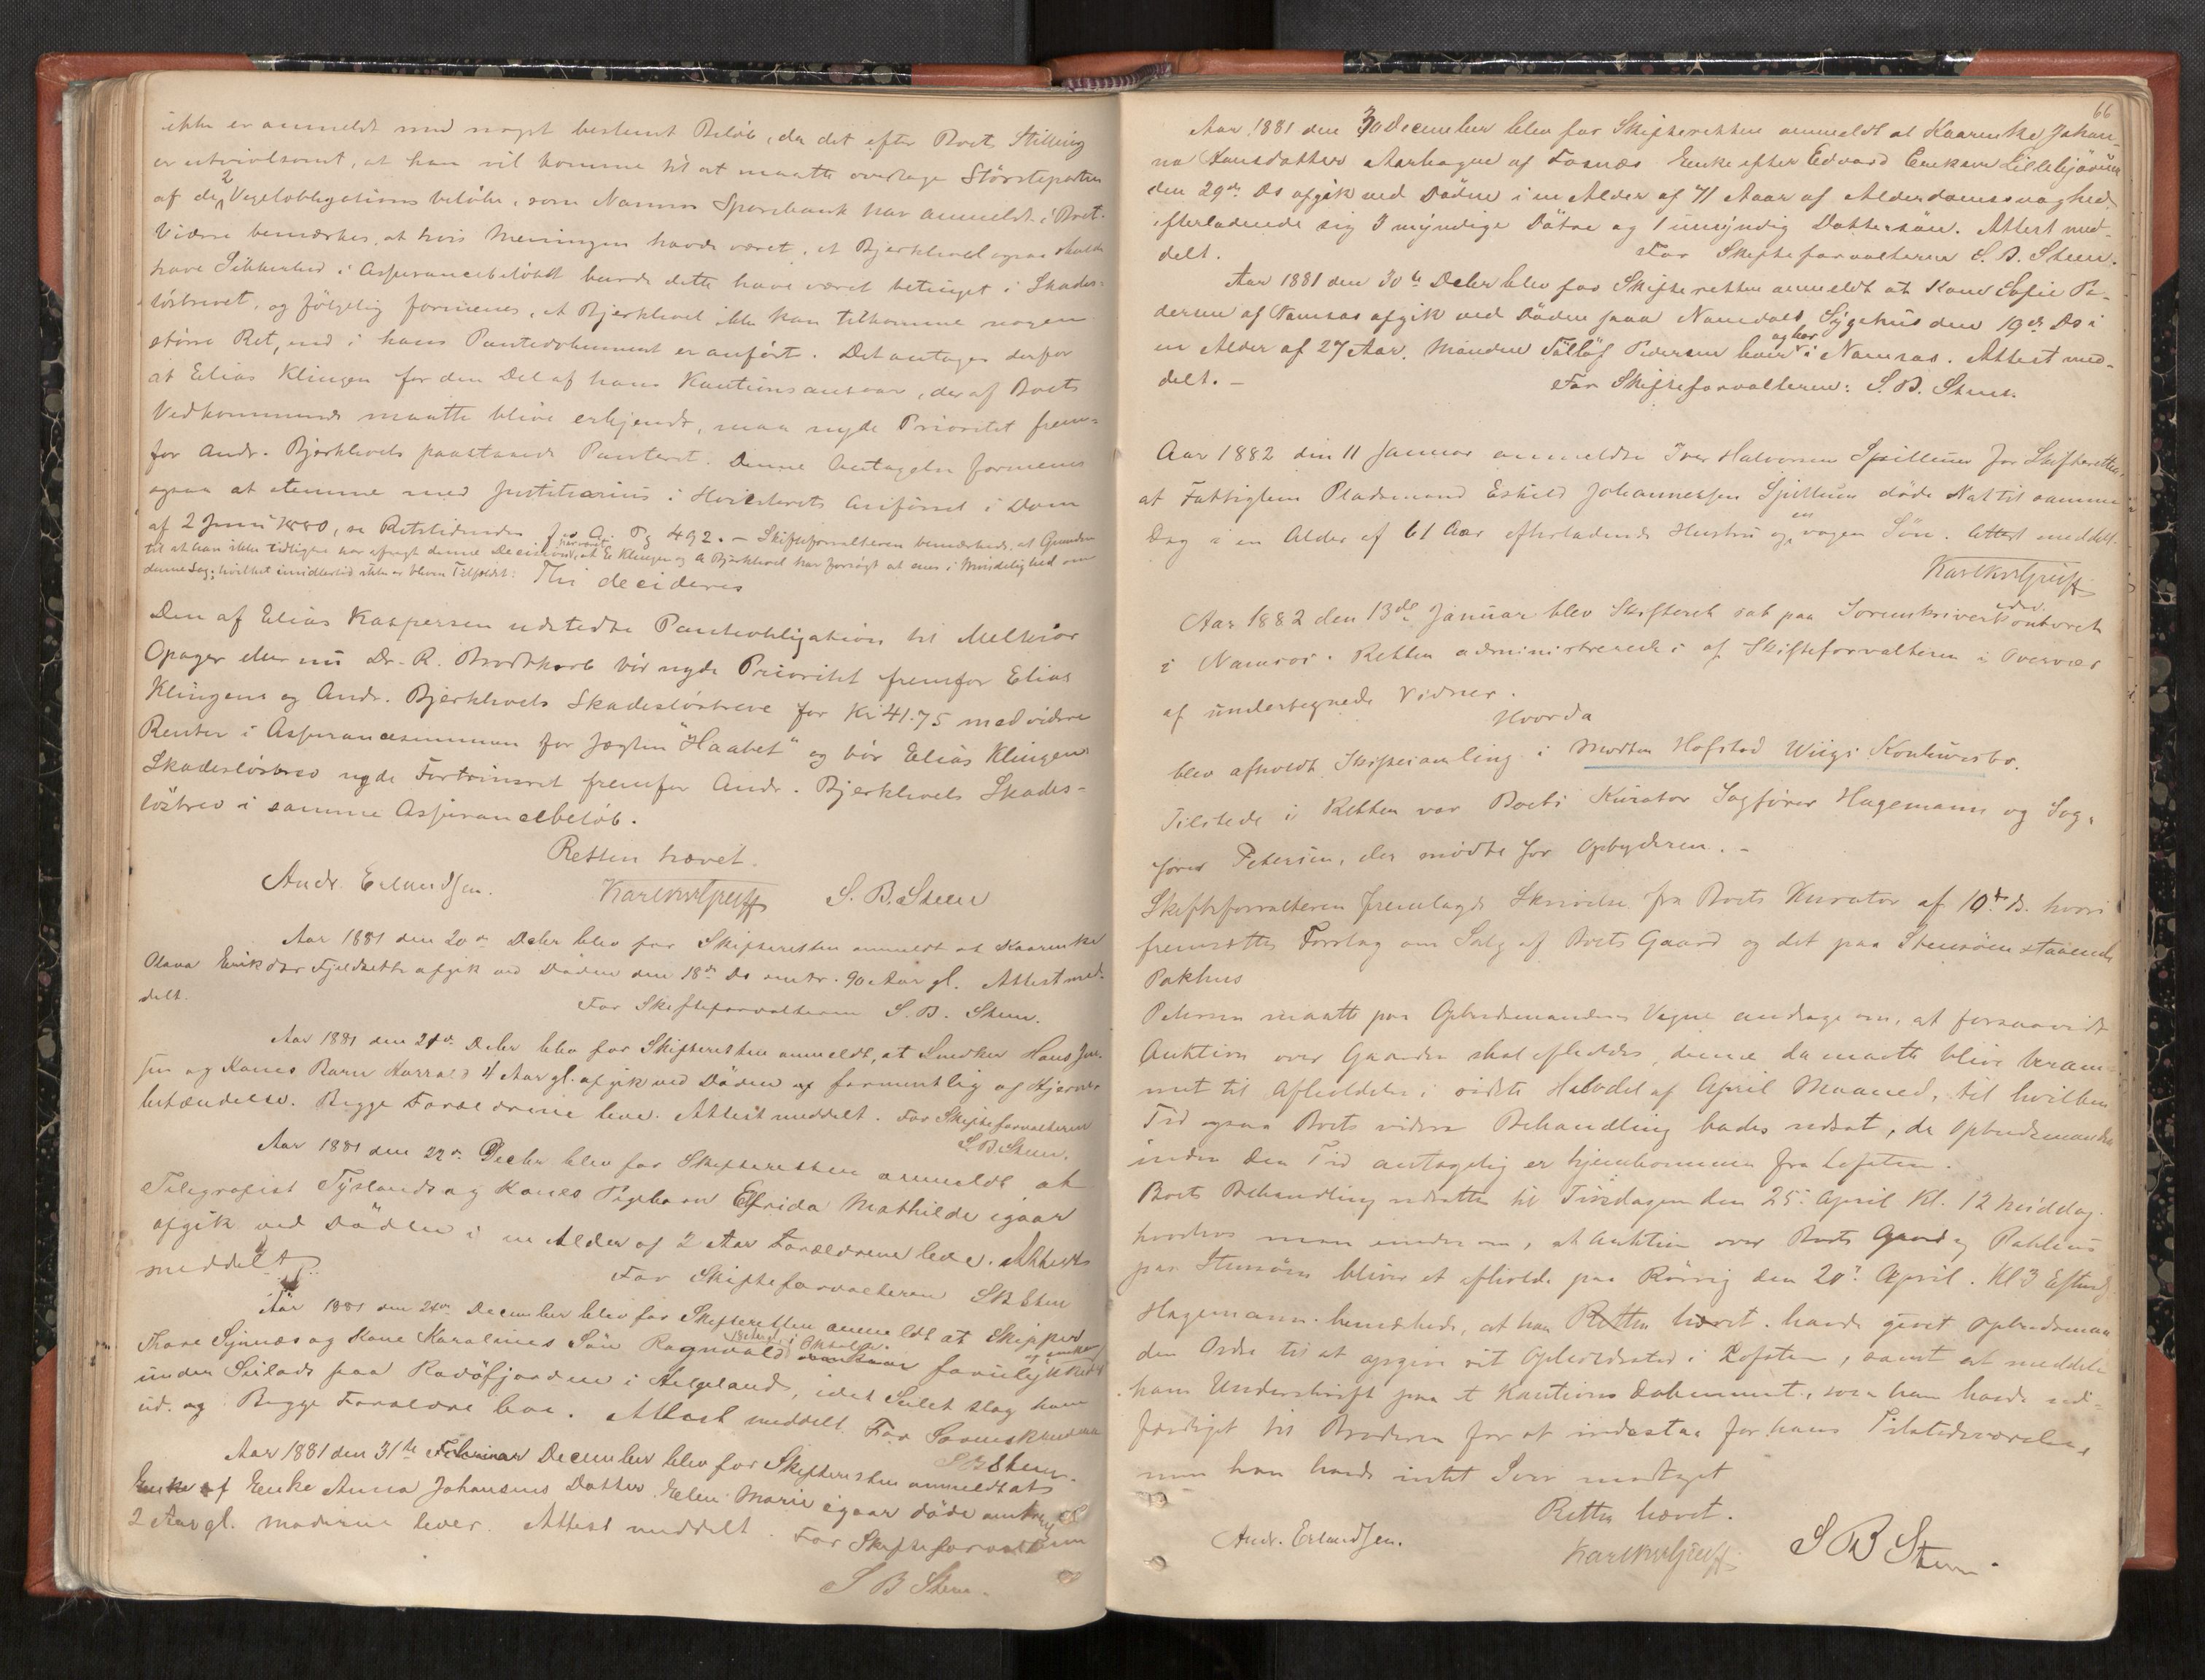 ikke er anmeldt med noget bestemt Beløb, da det efter Boets Stilling
er utvivlsomt, at han vil komme til at maatte overtage Størsteparten
af de 2 Vexelobligationsbeløbe, som Namsos Sparebank har anmeldt i Boet.
Videre bemærkes, at hvis Meningen havde været, at Bjerkhoel ogsaa skulde
have Sikkerhed i Assurancebeløbet burde dette have været betinget i Skades-
løsbrevet, og følgelig formenes, at Bjerkhoel ikke kan tilkomme nogen
større Ret, end i hans Pantedokument er anført. Det antages derfor
at Elias Klingen for den Del af hans Kautionsansvar, der af Boets
Vedkommende maatte blive erkjendt, maa nyde Prioritet frem-
for Andr. Bjerkhoels paastaaede Panteret. Denne Antagelse formenes
ogsaa at stemme med Justitiarius i Høiesterets Anførsel i Dom
af 2 Juni 1880, se Retstidende f. s. A. Pg 492. – Skifteforvalteren bemærkede, at Grunden
til at han ikke tidligere har afsagt denne Decision, at E. Klingen og A Bjerkhoel har forsøgt at enes i Mindelighed om
denne Sag, hvilket imidlertid ikke er bleven Tilfældet: Thi decideres
Den af Elias Kaspersen udstedte Panteobligation til Melkior
Opager eller nu Dr. R. Brodtkorb bør nyde Prioritet fremfor Elias
Klingens og Andr. Bjerkhoels Skadesløsbreve for Kr 41.75 med videre
Renter i Assurancesummen for Jægten "Haabet" og bør Elias Klingens
Skadesløsbrev nyde Fortrinsret fremfor Andr. Bjerkhoels Skades-
løsbrev i samme Assurancebeløb.
Retten hævet.
Andr. Erlandsen. S. B. Steen
Aar 1881 den 20de Decbr blev for Skifteretten anmeldt at Kaarenke
Olava Eriksdtr Fjeldsett afgik ved Døden den 18de Ds omtr. 90 Aar gl. Attest med-
delt. For Skifteforvalteren S. B. Steen.
Aar 1881 den 21de Decbr blev for Skifteretten anmeldt, at Snedker Hans Jen-
sen og Kones Barn Harrald 4 Aar gl. afgik ved Døden af formentlig af Hjerne-
betændelse. Begge Forældrene leve. Attest meddelt. For Skifteforvalteren
S. B. Steen.
Aar 1881 den 22de Decbr blev for Skifteretten anmeldt at
Telegrafist Tyslands og Kones Pigebarn Elfrida Mathilde igaar
afgik ved Døden i en Alder af 2 Aar Forældrene leve. Attest
meddelt. For Skifteforvalteren SB Steen
Aar 1881 den 24de December blev for Skifteretten anmeldt at Skipper
Thore Sjenæs og Kone Karolines Søn Ragnvald forulykket
under Seilads paa Rødøfjorden i Helgeland, idet Seilet slog ham
ud. og Begge Forældre leve. Attest meddelt. For Sorenskriveren
SB Steen.
Aar 1881 den 31te Februar December blev for Skifteretten anmeldt at
Enke af Enke Anna Johansens Datter Elen Marie igaar døde omtrent
2 Aar gl. Moderen lever. Attest meddelt. For Skifteforvalteren
S B Steen.
66
Aar 1881 den 30 December blev for Skifteretten anmeldt at Kaarenke Johan-
na Hansdatter Aarhagen af Fosnæs Enke efter Edvard Eriksen Lillekjøeren
den 29de Ds afgik ved Døden i en Alder af 71 Aar af Alderdomssvaghed
efterladende sig 3 myndige Døtre og 1 umyndig Dattersøn. Attest med-
delt. For Skifteforvalteren S. B. Steen.
Aar 1881 den 30te Decbr blev for Skifteretten anmeldt at Kone Sofie Pe-
dersen af Namsos afgik ved Døden paa Namdals Sygehus den 19de Ds i
en Alder af 27 Aar. Manden Tollöf Pedersen lever og bor i Namsos. Attest med-
delt. – For Skifteforvalteren: S. B. Steen.
Aar 1882 den 11 Januar anmeldte Iver Halvorsen Spillum for Skifteretten,
at Fattiglem Pladsmand Eskild Johannessen Spillum døde Nat til samme
Dag i en Alder af 61 Aar efterladende Hustru og en voxen Søn. Attest meddelt.
Aar 1882 den 13de Januar blev Skifteret sat paa Sorenskriverkontoret
i Namsos. Retten administreredes af Skifteforvalteren i Overvær
af undertegnede Vidner.
Hvorda
blev afholdt Skiftesamling i Morten Hofstad Wiigs Konkursbo.
Tilstede i Retten var Boets Kurator Sagfører Hagemann og Sag-
fører Petersen, der mødte for Opbyderen. –
Skifteforvalteren fremlagde Skrivelse fra Boets Kurator af 10de ds. hvori
fremsættes Forslag om Salg af Boets Gaard og det paa Steensøen staaende
Pakhus
Petersen maatte paa Opbudsmandens Vegne andrage om, at forsaavidt
Auktion over Gaarden skal afholdes, denne da maatte blive beram-
met til Afholdelse i sidste Halvdel af April Maaned, til hvilken
Tid ogsaa Boets videre Behandling bedes udsat, da Opbudsmanden
inden den Tid antagelig er hjemkommen fra Lofoten.
Boets Behandling udsattes til Tirsdagen den 25. April Kl. 12 Middag.
hvorhos man enedes om, at Auktion over Boets Gaard og Pakhus
paa Steensøen bliver at afholde paa Rørvig den 20de April. Kl 3 Efterm.
Hagemann bemærkede, at han Retten hævet. havde givet Opbudsman
den Ordre til at opgive sit Opholdssted i Lofoten, samt at meddele
ham Underskrift paa et Kautions Dokument, som han havde ud-
færdiget til Broderen for at indestaa for hans Tilstedeværelse,
men han havde intet Svar modtaget
Retten hævet.
Andr. Erlandsen. S B Steen.